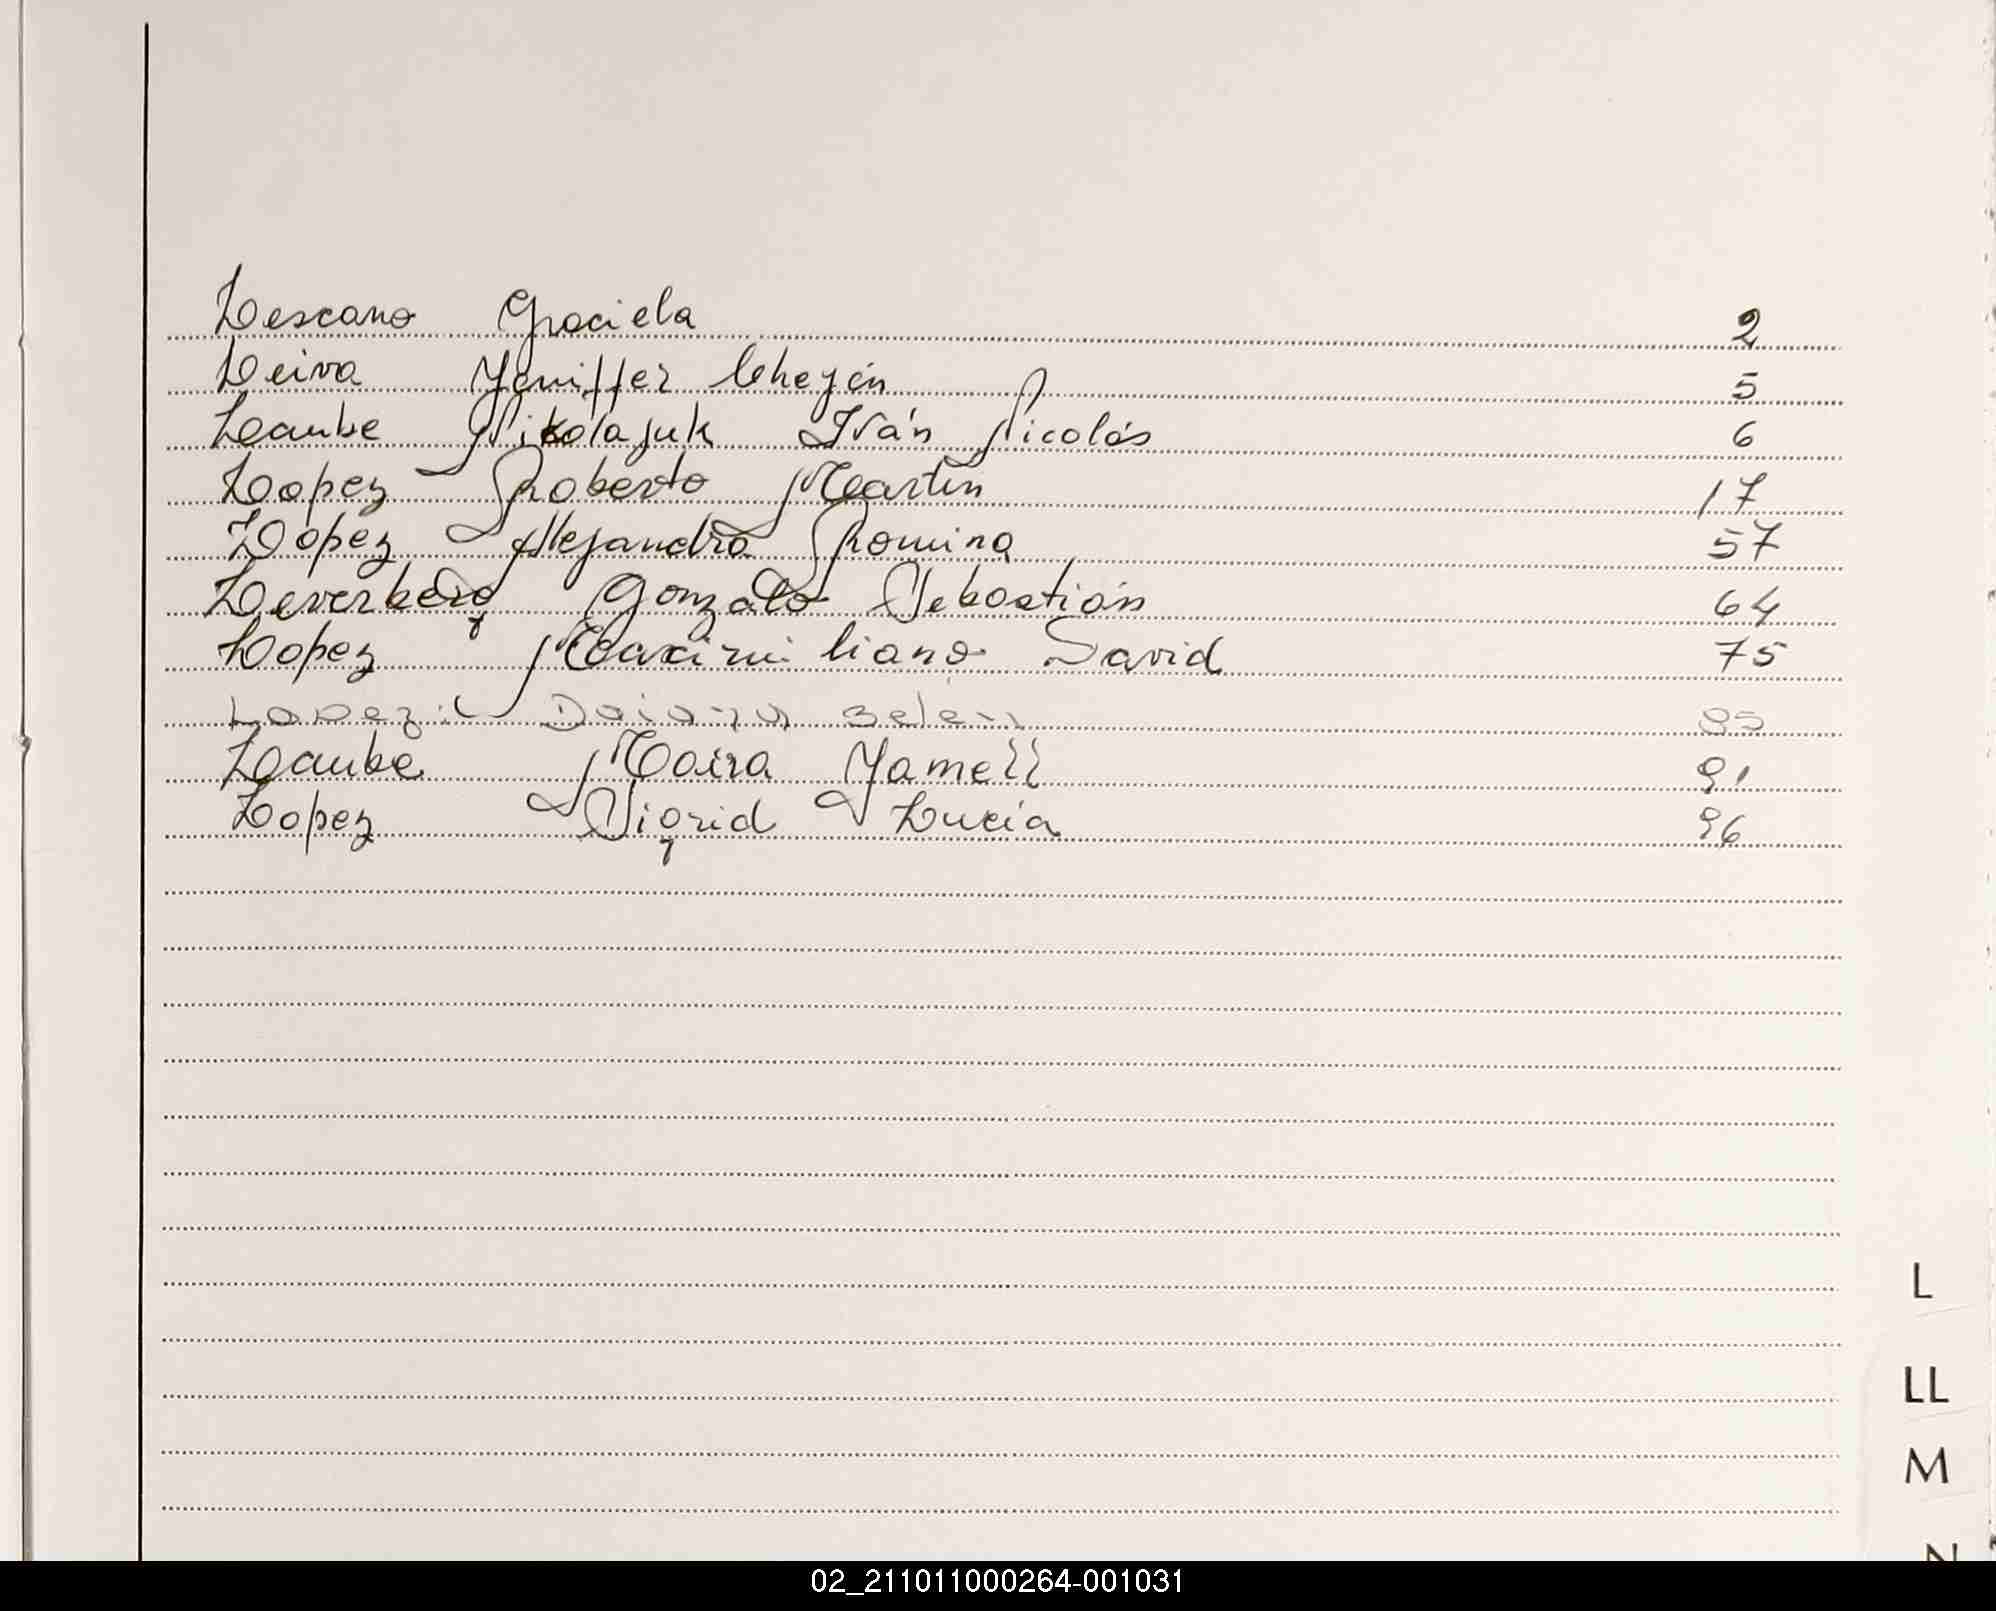 Lescano Graciela 2
Leiva Yeniffer Cheyén 5
Laube Nikolajuk Iván Nicolás 6
Lopez Roberto Martin 17
Lopez Alejandra Romina 57
Leverberg Gonzalo Sebastián 64
Lopez Maximiliano David 75
Lopez Daiana Belen 85
Laube Moira Yamell 91
Lopez Sigrid Lucía 96
L
LL
M
N
02_211011000264-001031